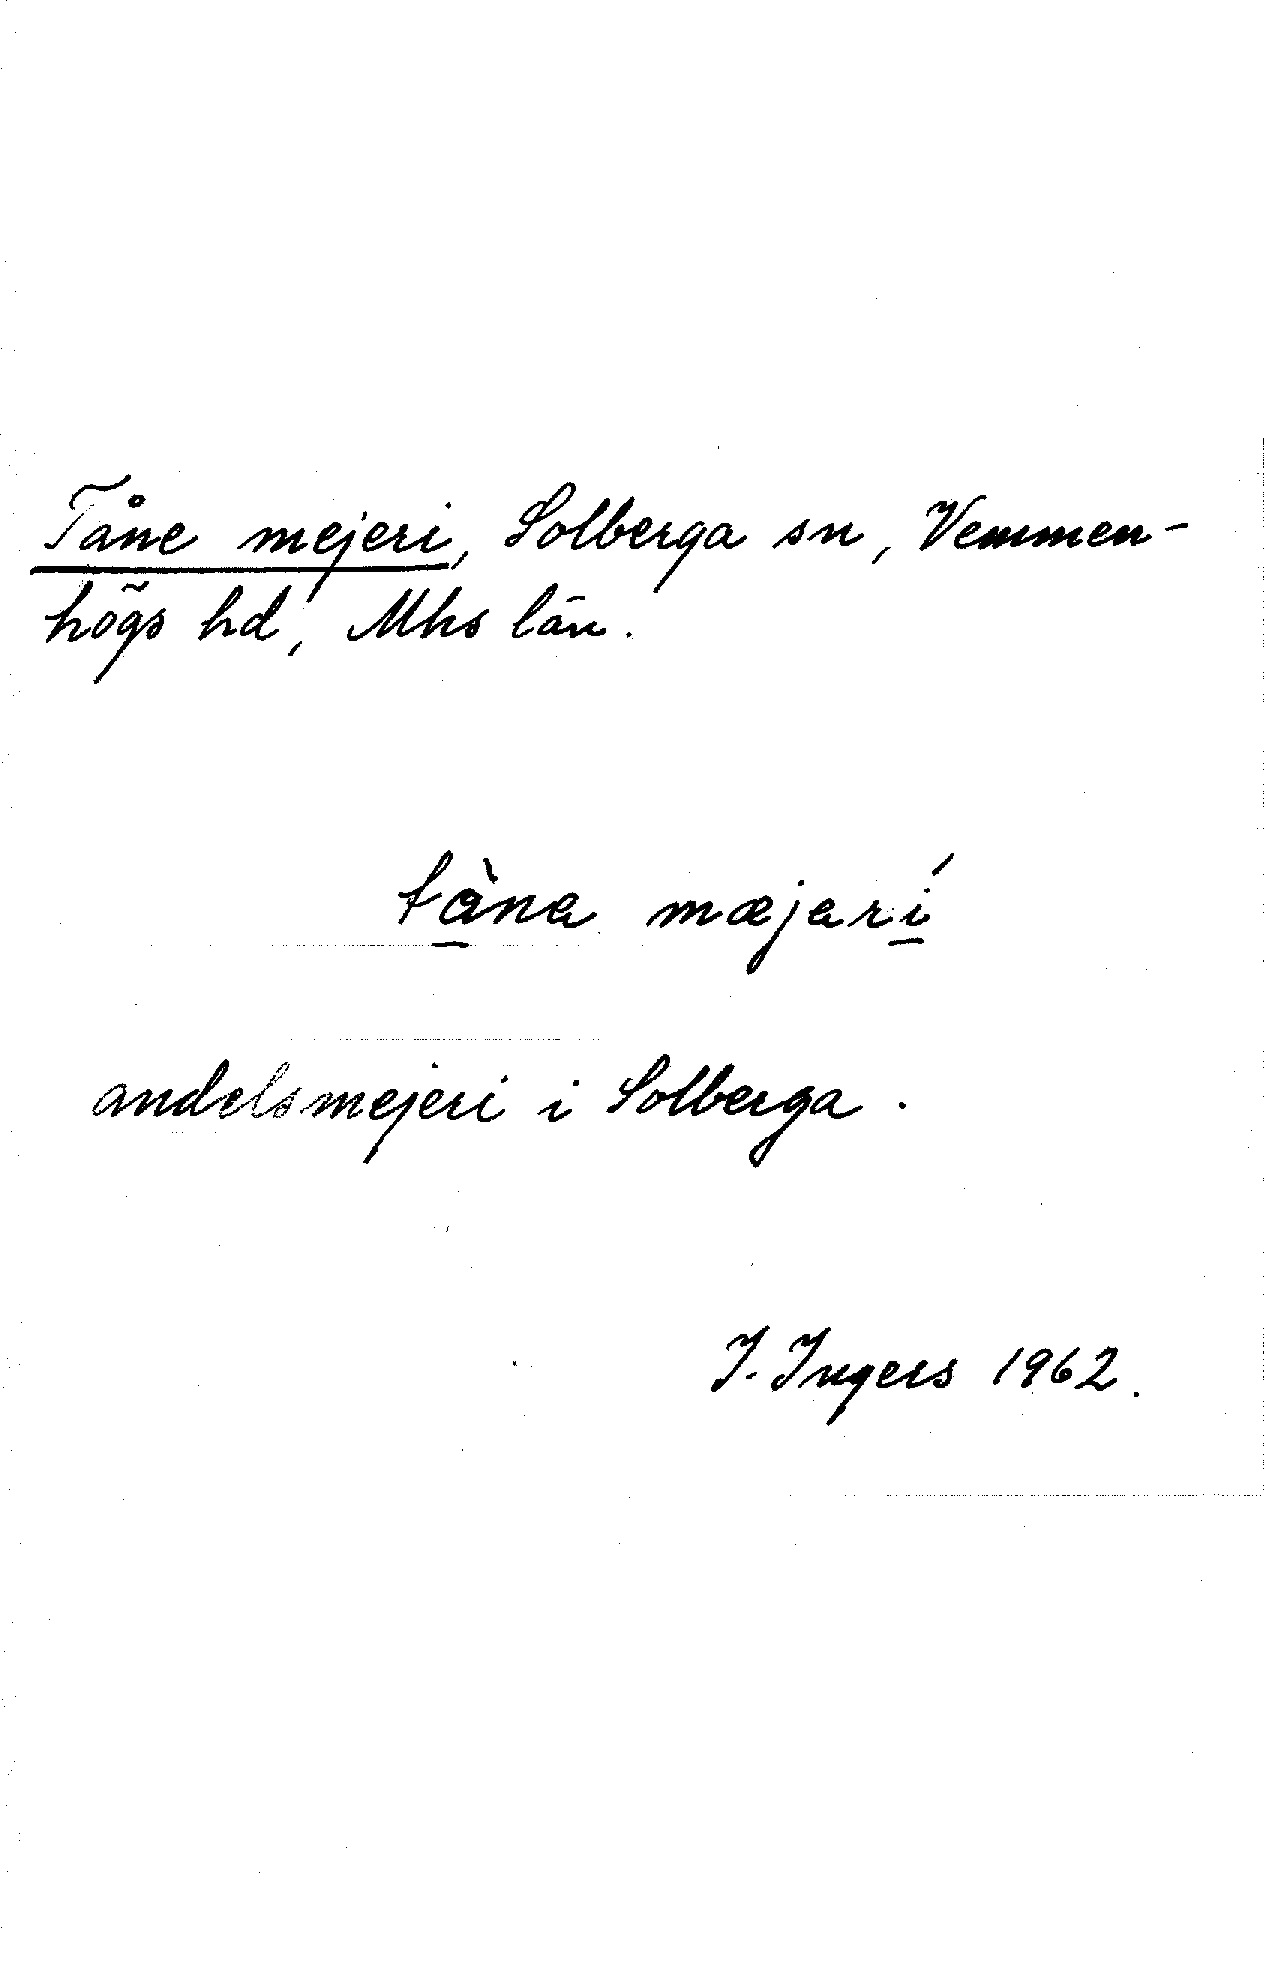 Tåne mejeri, Solberga sn, Vemmen-
högs hd, Mhs län.
tàna mæjarí
andelsmejeri i Solberga.
I. Ingers 1962.